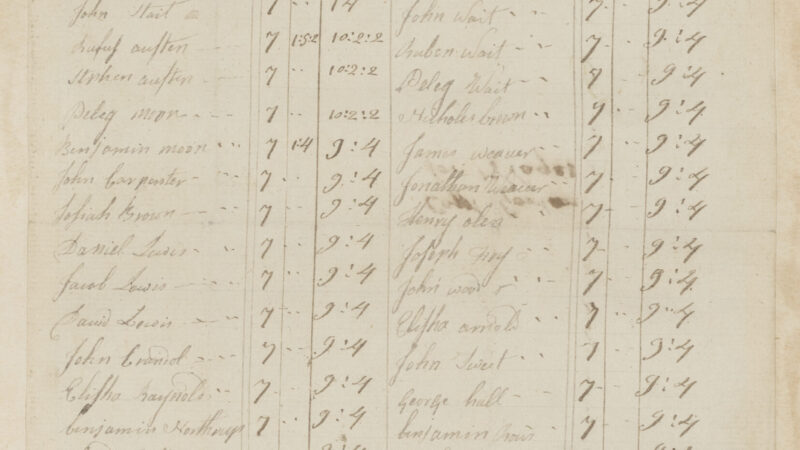 John Wait 7 14
Rufus austen 7 1:5:2 10:2:2
Stephen austen 7 10:2:2
Peleg moon 7 10:2:2
Benjamin moon 7 1:4 9:4
John Carpenter 7 9:4
Josiah Brown 7 9:4
Daniel Lewis 7 9:4
Jacob Lewis 7 9:4
David Lewis 7 9:4
John Crandol 7 9:4
Elisha Raynolds 7 9:4
benjamin Northrup 7 9:4
John Wait 7 9:4
Ruben Wait 7 9:4
Peleg Wait 7 9:4
Nicholes brown 7 9:4
James weaver 7 9:4
Jonathan Weaver 7 9:4
Henry olen 7 9:4
Joseph 7 9:4
John wood 7 9:4
Elisha arnold 7 9:4
John Sweet 7 9:4
George hall 7 9:4
benjamin 7 9:4